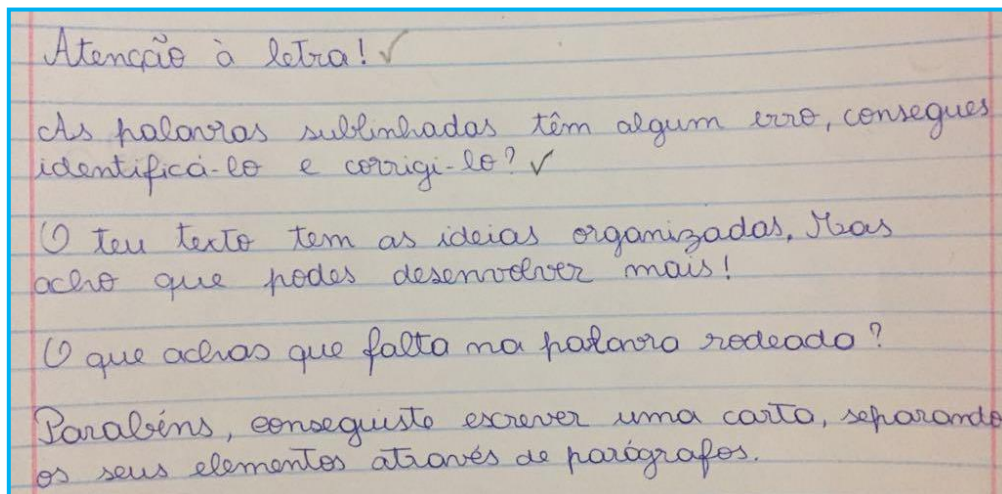 Atenção à letra! ✓
As palavras sublinhadas têm algum erro, consegues
identificá-lo e corrigi-lo? ✓
O teu texto tem as ideias organizadas, Mas
acho que podes desenvolver mais!
O que achas que falta na palavra rodeada?
Parabéns, conseguiste escrever uma carta, separando
os seus elementos através de parágrafos.